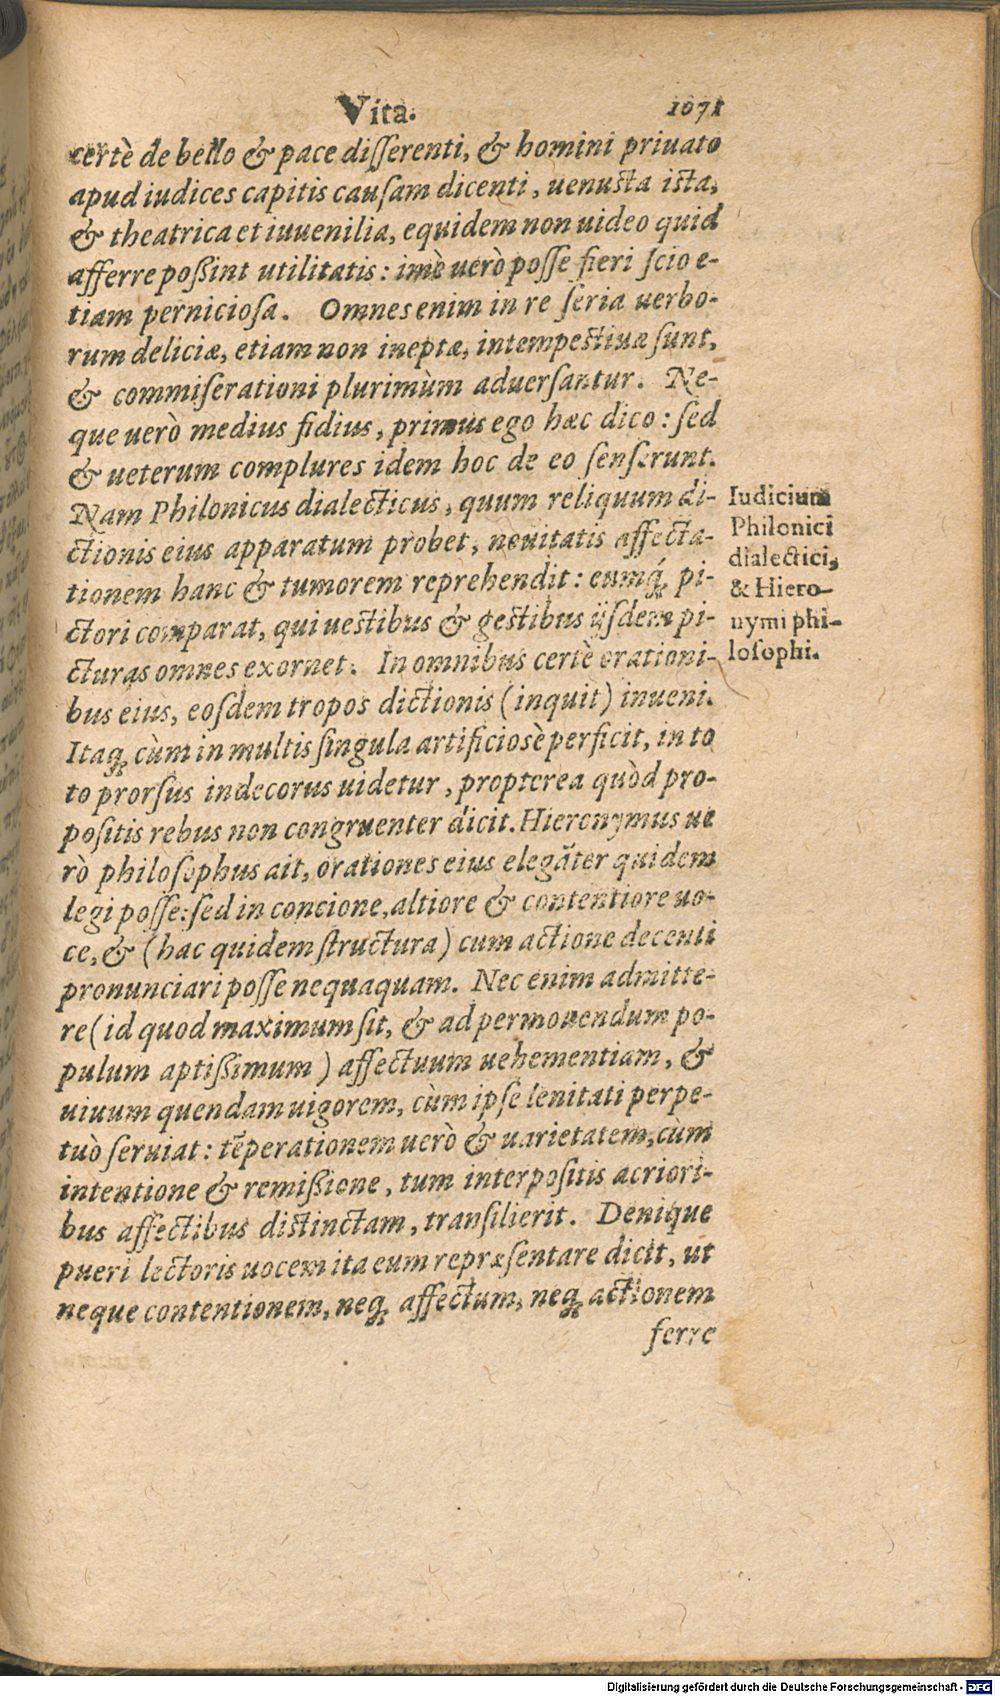 Vita. 1071
certè de bello & pace disserenti, & homini priuato
apud iudices capitis causam dicenti, uenusta ista,
& theatrica et iuuenilia, equidem non uideo quid
afferre poßint utilitatis: imè uerò posse fieri scio e-
tiam perniciosa. Omnes enim in re seria uerbo-
rum deliciæ, etiam non ineptæ, intempestiuæ sunt,
& commiserationi plurimùm aduersantur. Ne-
que uerò medius fidius, primus ego hæc dico: sed
& ueterum complures idem hoc de eo senserunt.
Nam Philonicus dialecticus, quum reliquum di-
ctionis eius apparatum probet, nouitatis affecta-
tionem hanc & tumorem reprehendit: eumq́; pi-
ctori comparat, qui uestibus & gestibus ijsdem pi-
cturas omnes exornet. In omnibus certè orationi-
bus eius, eosdem tropos dictionis (inquit) inueni.
Itaq; cùm in multis singula artificiosè perficit, in to
to prorsùs indecorus uidetur, propterea quòd pro-
positis rebus non congruenter dicit. Hieronymus ue
rò philosophus ait, orationes eius elegãter quidem
legi posse: sed in concione, altiore & contentiore uo-
ce, & (hac quidem structura) cum actione decenti
pronunciari posse nequaquam. Nec enim admitte-
re (id quod maximum sit, & ad permouendum po-
pulum aptißimum) affectuum uehementiam, &
uiuum quendam uigorem, cùm ipse lenitati perpe-
tuò seruiat: tẽperationem uerò & uarietatem, cum
intentione & remißione, tum interpositis acriori-
bus affectibus distinctam, transilierit. Denique
pueri lectoris uocem ita eum repræsentare dicit, ut
neque contentionem, neq; affectum, neq; actionem
ferre
Iudicium
Philonici
dialectici,
& Hiero-
nymi phi-
losophi.
Digitalisierung gefördert durch die Deutsche Forschungsgemeinschaft - DFG